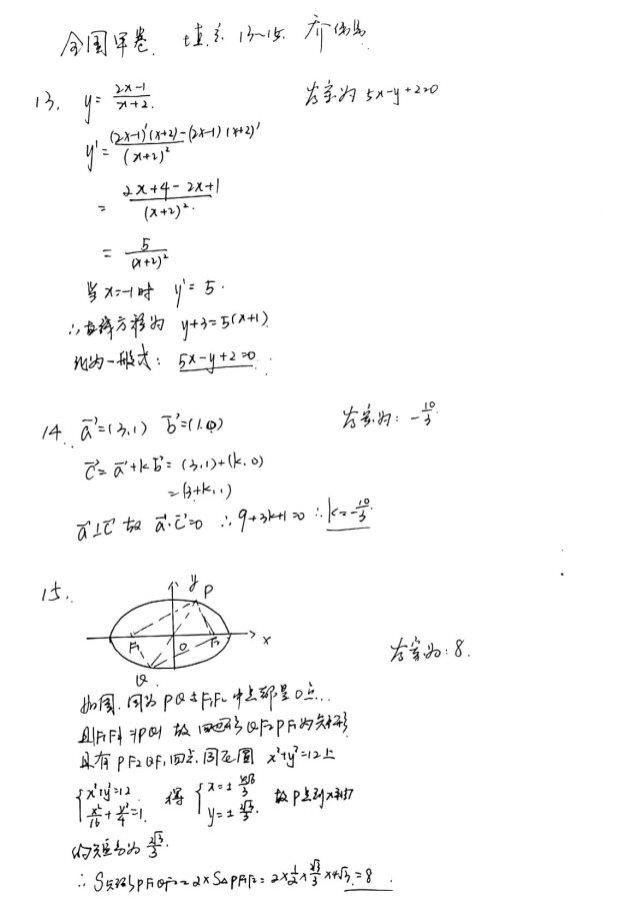 全国甲卷 填空 13~15
13. y = \frac{2x-1}{x+2} 答案为 5x-y+2=0
y' = \frac{(2x-1)'(x+2)-(2x-1)(x+2)'}{(x+2)^2}
= \frac{2x+4-2x+1}{(x+2)^2}
= \frac{5}{(x+2)^2}
当 x=-1时 y'=5.
∴直线方程为 y+3=5(x+1)
化为一般式: 5x-y+2=0.
14. \vec{a}=(3,1) \vec{b}=(1,0) 答案为: -\frac{10}{3}
\vec{c}=\vec{a}+k\vec{b}=(3,1)+(k,0)
=(3+k,1)
\vec{a}⊥\vec{c} 故 \vec{a}·\vec{c}=0 ∴9+3k+1=0 ∴k=-\frac{10}{3}.
15.
y P
F₁ O F₂ x
Q
答案为: 8.
如图,因为PQ与F₁F₂中点都是O点..
且|F₁F₂|=|PQ| 故 四边形QF₂PF₁为矩形
且有 PF₂QF₁四点,同在圆 x²+y²=12上
{x²+y²=12 \frac{x²}{16}+\frac{y²}{4}=1. 得 {x=±\frac{4\sqrt{6}}{3} y=±\frac{2\sqrt{3}}{3}. 故P点到x轴
的距离为\frac{2\sqrt{3}}{3}.
∴S矩形PF₁QF₂=2×S△PF₁F₂=2×\frac{1}{2}×\frac{2\sqrt{3}}{3}×4\sqrt{3}=8